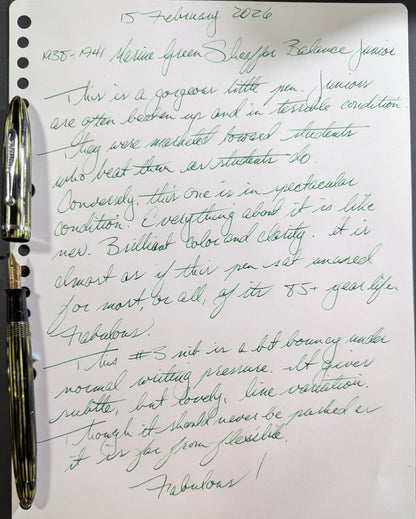 15 February 2026
1935-1941 Marine Green Sheaffer Balance Junior
This is a gorgeous little pen. Juniors
are often beaten up and in terrible condition.
They were marketed toward students
who beat them as students do.
Conversely, this one is in spectacular
condition. Everything about it is like
new. Brilliant color and clarity. it is
almost as if this pen sat unused
for most, or all, of its 85+ year life.
Fabulous!
This #3 nib is a bit bouncy under
normal writing pressure. It gives
subtle, but lovely, line variation.
Though it should never be pushed as
it is far from flexible.
Fabulous!